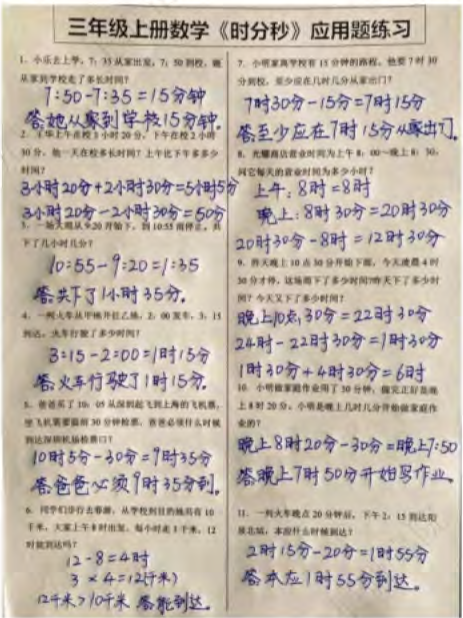 三年级上册数学《时分秒》应用题练习
1、小乐去上学，7：35从家出发，7：50到校，她
从家到学校走了多长时间？
7:50-7:35=15分钟
答她从家到学校15分钟。
2、王华上午在校3小时20分，下午在校2小时
30分，他一天在校多长时间？上午比下午多多少
时间？
3小时20分+2小时30分=5小时5分
3小时20分-2小时30分=50分
3、一场大雨从9:20开始下，到10:55雨停止，共
下了几小时几分？
10:55-9:20=1:35
答:共下了1小时35分。
4、一列火车从甲地开往乙地，2：00发车，3：15
到达，火车行驶了多少时间？
3:15-2:00=1时15分
答:火车行驶了1时15分。
5、爸爸买了10：05从深圳起飞到上海的飞机票，
坐飞机需要提前30分钟检票，爸爸必须什么时候
到达深圳机场检票口？
10时5分-30分=9时35分
答爸爸必须9时35分到。
6、同学们步行去春游，从学校到目的地共有10
千米，大家上午8时出发，每小时走3千米，12
时能到达吗？
12-8=4时
3×4=12(千米)
12千米>10千米 答能到达。
7、小明家离学校有15分钟的路程，他要7时30
分到校，至少应在几时几分从家出门？
7时30分-15分=7时15分
答至少应在7时15分从家出门。
8、光耀商店营业时间为上午8：00～晚上8：30，
问它每天的营业时间为多少小时？
上午:8时=8时
晚上:8时30分=20时30分
20时30分-8时=12时30分
9、昨天晚上10点30分开始下雨，今天凌晨4时
30分才停，这场雨下了多少时间？昨天下了多少时
间？今天又下了多少时间？
晚上10点30分=22时30分
24时-22时30分=1时30分
1时30分+4时30分=6时
10、小明做家庭作业用了30分钟，做完正好是晚
上8时20分，小明是晚上几时几分开始做家庭作
业的？
晚上8时20分-30分=晚上7:50
答晚上7时50分开始写作业。
11、一列火车晚点20分钟后，下午2：15到达阳
泉北站，本应什么时候到达？
2时15分-20分=1时55分
答本应1时55分到达。